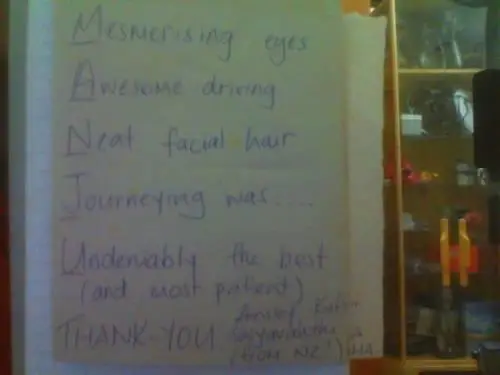 Mesmerising eyes
Awesome driving
Neat facial hair
Journeying was.....
Undeniably the best
(and most patient)
THANK-YOU
(from NZ!)